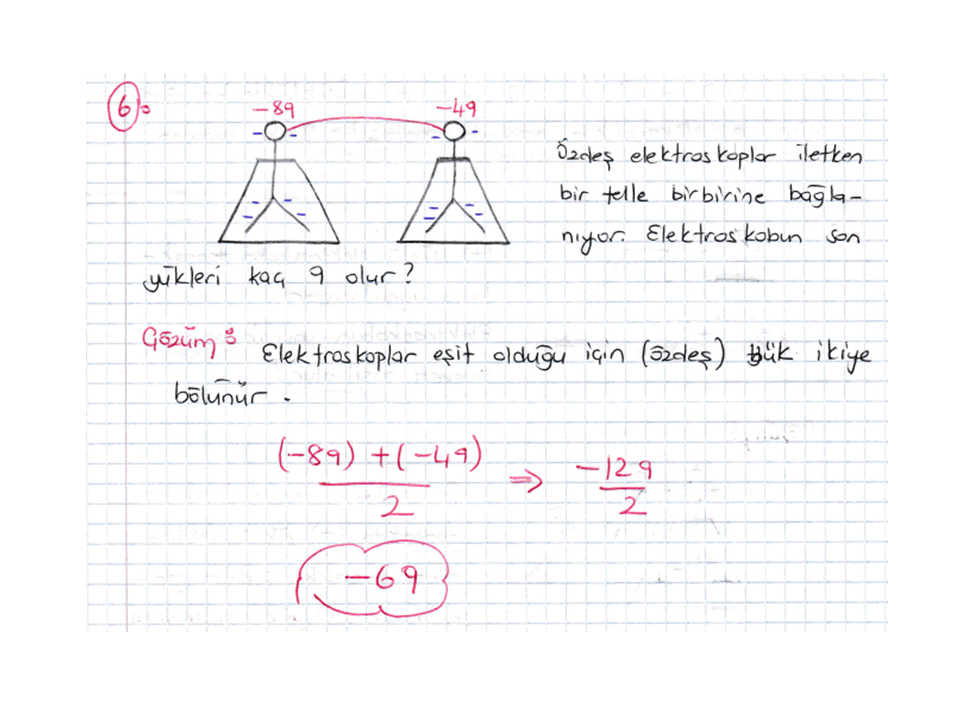 6:
-8q -4q
Özdeş elektroskoplar iletken
bir telle birbirine bağla-
nıyor. Elektroskobun son
yükleri kaç q olur?
Çözüm: Elektroskoplar eşit olduğu için (özdeş) yük ikiye
bölünür.
(-8q) + (-4q)
2
⇒
-12q
2
-6q